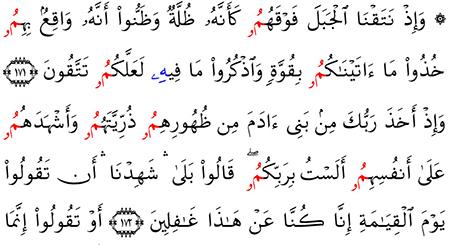 ۞ وَإِذْ نَتَقْنَا ٱلْجَبَلَ فَوْقَهُمُۥ كَأَنَّهُۥ ظُلَّةٌ وَظَنُّوا۟ أَنَّهُۥ وَاقِعُۢ بِهِمُۥ
خُذُوا۟ مَا ءَاتَيْنَـٰكُمُۥ بِقُوَّةٍ وَٱذْكُرُوا۟ مَا فِيهِۦ لَعَلَّكُمُۥ تَتَّقُونَ ١٧١
وَإِذْ أَخَذَ رَبُّكَ مِنۢ بَنِىٓ ءَادَمَ مِن ظُهُورِهِمُۥ ذُرِّيَّتَهُمُۥ وَأَشْهَدَهُمُۥ
عَلَىٰٓ أَنفُسِهِمُۥ أَلَسْتُ بِرَبِّكُمُۥ ۖ قَالُوا۟ بَلَىٰ ۛ شَهِدْنَا ۛ أَن تَقُولُوا۟
يَوْمَ ٱلْقِيَـٰمَةِ إِنَّا كُنَّا عَنْ هَـٰذَا غَـٰفِلِينَ ١٧٢ أَوْ تَقُولُوا۟ إِنَّمَا